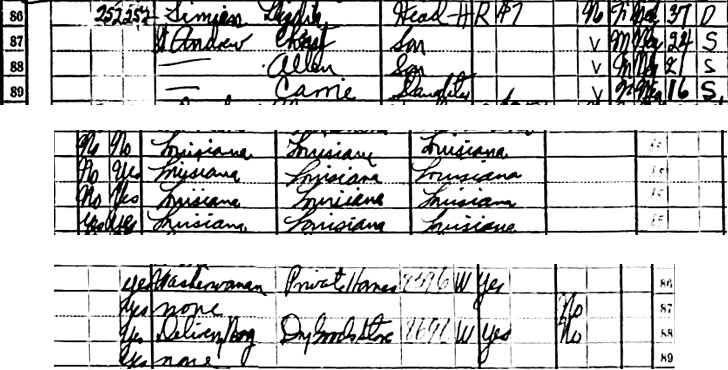 86 252 252 Head-H R $7 No F Neg 37 D
87 St Andrew Son V M Neg 24 S
88 — Allen Son V M Neg 21 S
89 — Carrie Daughter V F Neg 16 S
No No Louisiana Louisiana Louisiana 15
No Yes Louisiana Louisiana Louisiana 15
No Yes Louisiana Louisiana Louisiana 15
Yes Yes Louisiana Louisiana Louisiana 15
yes Washerwoman Private Homes 8396 W Yes 86
Yes none No 87
Yes Delivery Boy Dry Goods Store W Yes No 88
Yes none 89